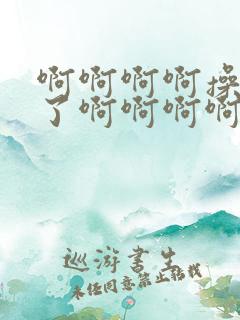 啊啊啊啊操
了啊啊啊啊
巡游书生
未经同意禁止转载